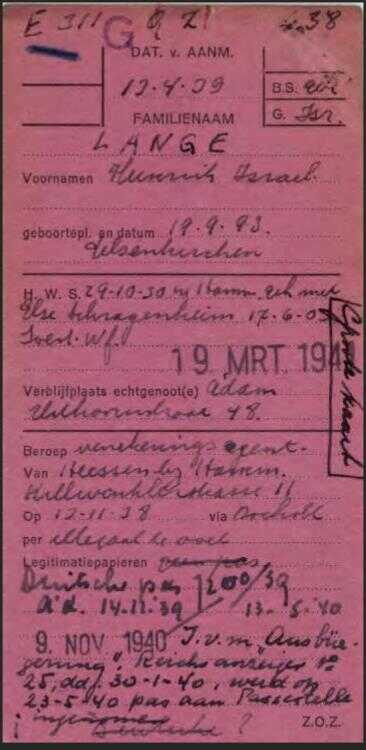 E 311 G Q Z! 38
DAT. v. AANM.
13-4-39
B.S.
FAMILIENAAM
G. Isr.
LANGE
Voornamen Heinrich Israel.
geboortepl. en datum 19.9.93.
Gelsenkirchen
H. W. S. 29-10-30 Hamm, geh met
Else Schragenheim 17-6-05
Iserl. Wf.
19 MRT. 194
Groote kaart
Verblijfplaats echtgenoot(e) Adam
48.
Beroep verzekerings agent.
Van Heessen by Hamm.
11
Op 12-11-38 via Bocholt
per illegaal te voet
Legitimatiepapieren pas
Deutsche pas 200/39
a'd. 14.11.39 13-5-40
9. NOV. 1940 I.v.m. "Ausbür-
gerung", Reichsanzeiger no
25, dd. 30-1-40, werd op
23-5-40 pas aan Passestelle
ingenomen
? Z.O.Z.